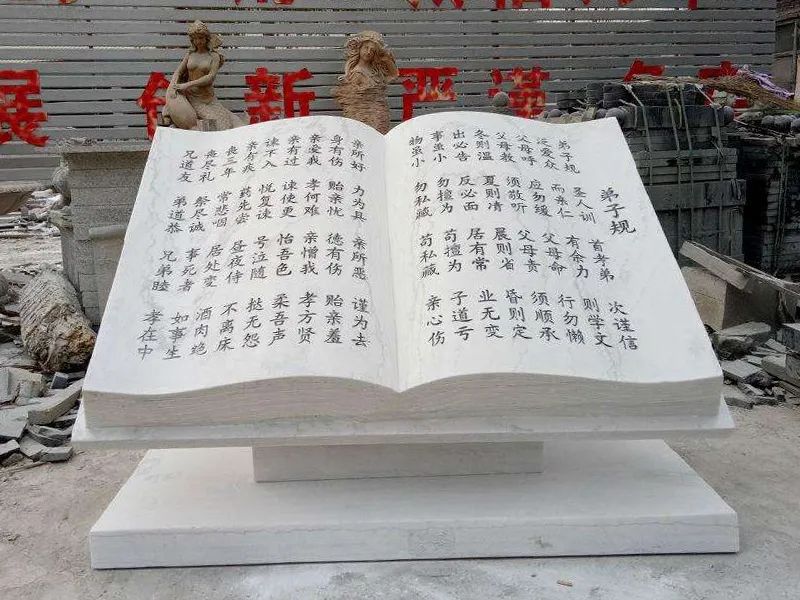 展 创新 严谨
弟子规
弟子规 圣人训 首孝弟 次谨信
泛爱众 而亲仁 有余力 则学文
父母呼 应勿缓 父母命 行勿懒
父母教 须敬听 父母责 须顺承
冬则温 夏则凊 晨则省 昏则定
出必告 反必面 居有常 业无变
事虽小 勿擅为 苟擅为 子道亏
物虽小 勿私藏 苟私藏 亲心伤
亲所好 力为具 亲所恶 谨为去
身有伤 贻亲忧 德有伤 贻亲羞
亲爱我 孝何难 亲憎我 孝方贤
亲有过 谏使更 怡吾色 柔吾声
谏不入 悦复谏 号泣随 挞无怨
亲有疾 药先尝 昼夜侍 不离床
丧三年 常悲咽 居处变 酒肉绝
丧尽礼 祭尽诚 事死者 如事生
兄道友 弟道恭 兄弟睦 孝在中